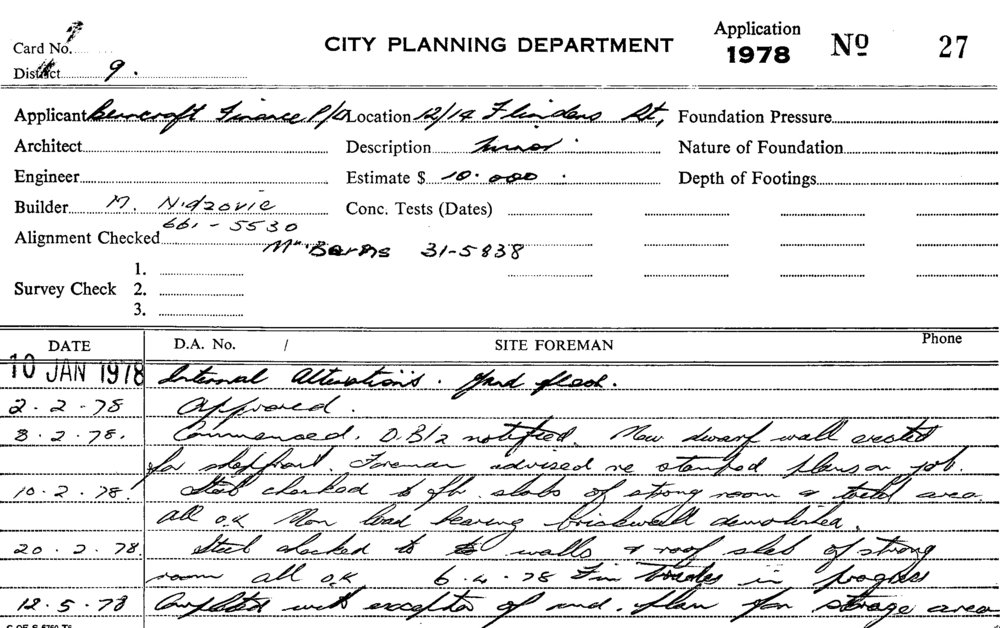 Card No.
CITY PLANNING DEPARTMENT
Application 1978 No 27
District 9.
Applicant Bencroft Finance P/L Location 12/14 Flinders St, Foundation Pressure
Architect Description Minor Nature of Foundation
Engineer Estimate $ 10.000 Depth of Footings
Builder M. Nidzovic Conc. Tests (Dates)
661-5530
Alignment Checked
Mr Barns 31-5838
1.
Survey Check 2.
3.
DATE D.A. No. / SITE FOREMAN Phone
10 JAN 1978 Internal Alterations.
2.2.78 Approved.
8.2.78. Commenced. D.B/2 notified. New dwarf wall erected
for shopfront. Foreman advised re stamped plans on job.
10.2.78. Steel checked to slabs of strong room & area
all o.k Non load bearing brickwall demolished.
20.2.78. Steel checked to walls & roof slab of strong
room all o.k 6.4.78 Fin trades in progress
12.5.78 Completed with exception of plan for storage area